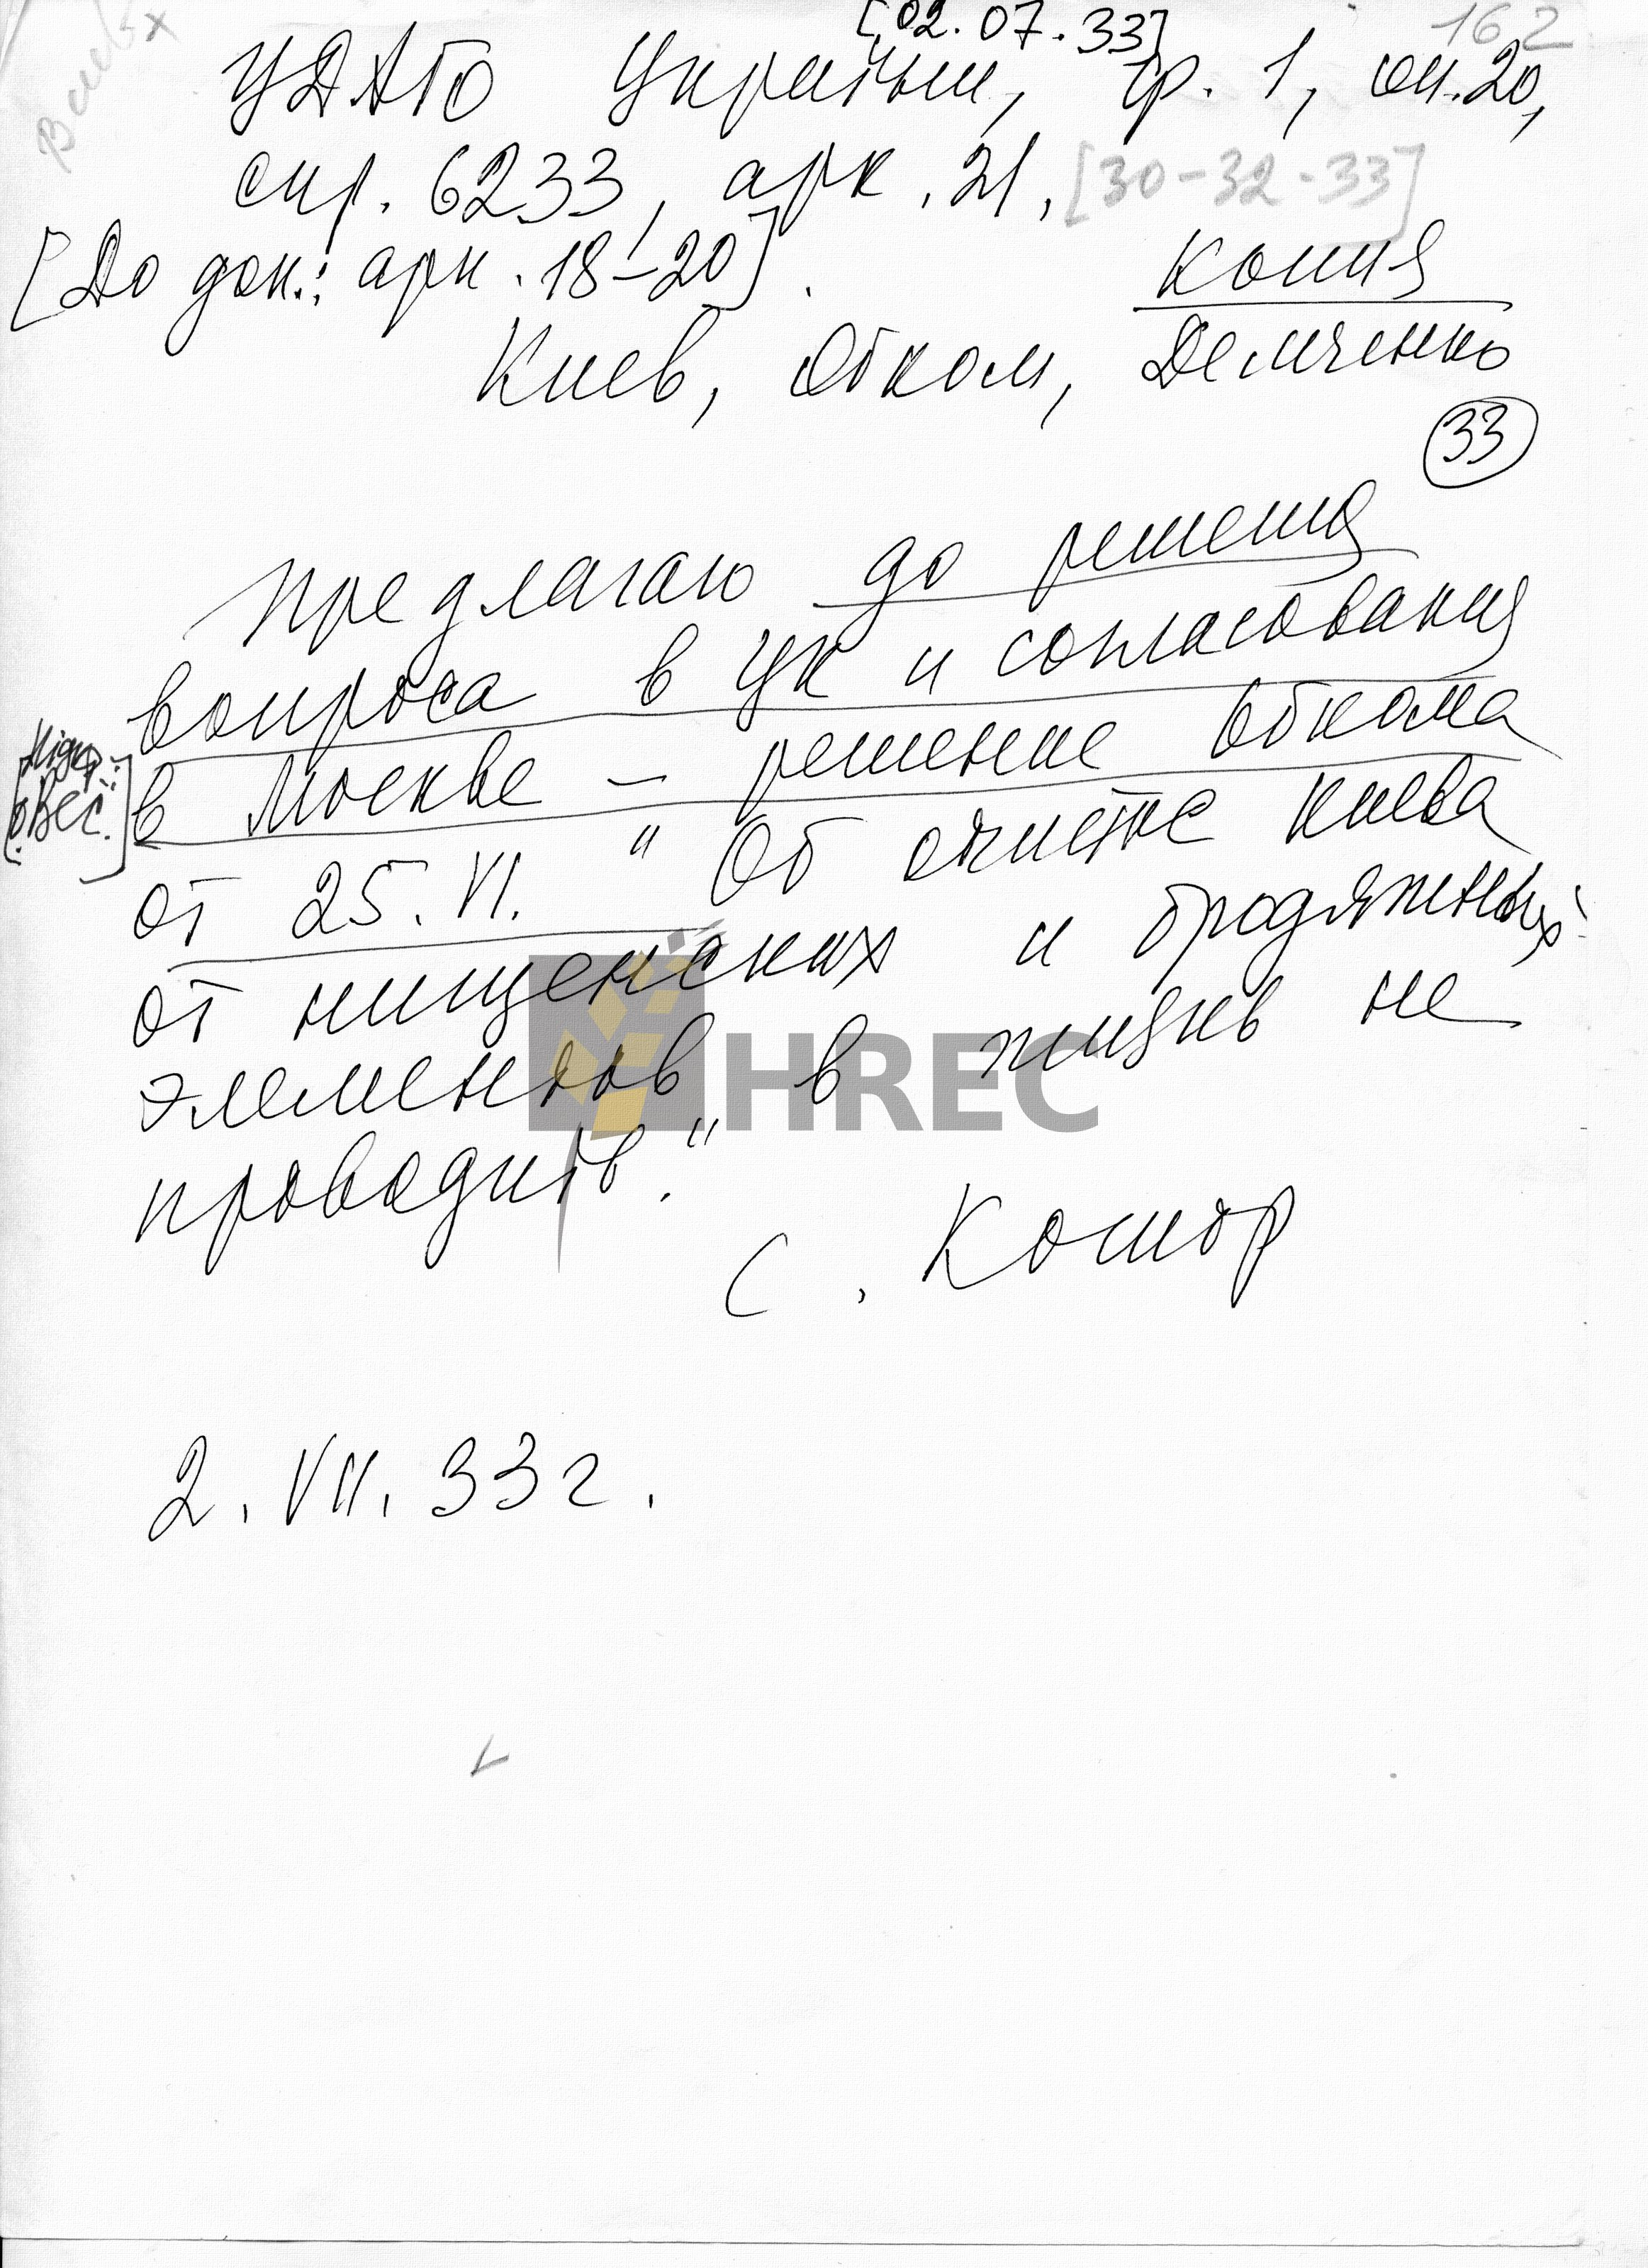 [02.07.33]
162
ЦДАГО України, ф. 1, оп. 20,
спр. 6233, арк. 21, [30-32-33]
[До док.: арк. 18-20].
Копия
Киев, Обком, Демченко
33
Предлагаю до решения
вопроса в ЦК и согласования
в Москве – решение Обкома
от 25. VI. "Об очистке Киева
от нищенских и бродяжных
элементов в жизнь не
проводить."
С. Косиор
2. VII. 33 г.
HREC